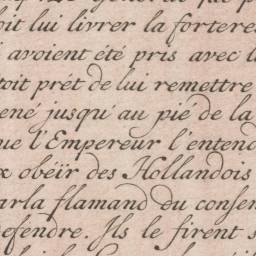 oit lui livrer la forteres
avoient été pris avec l
toit prét de lui remettre
ené jusqu'au pie de la
ue l'Empereur l'entend
x obëir des Hollandois
arla flamand du consen
efendre. Ils le firent s